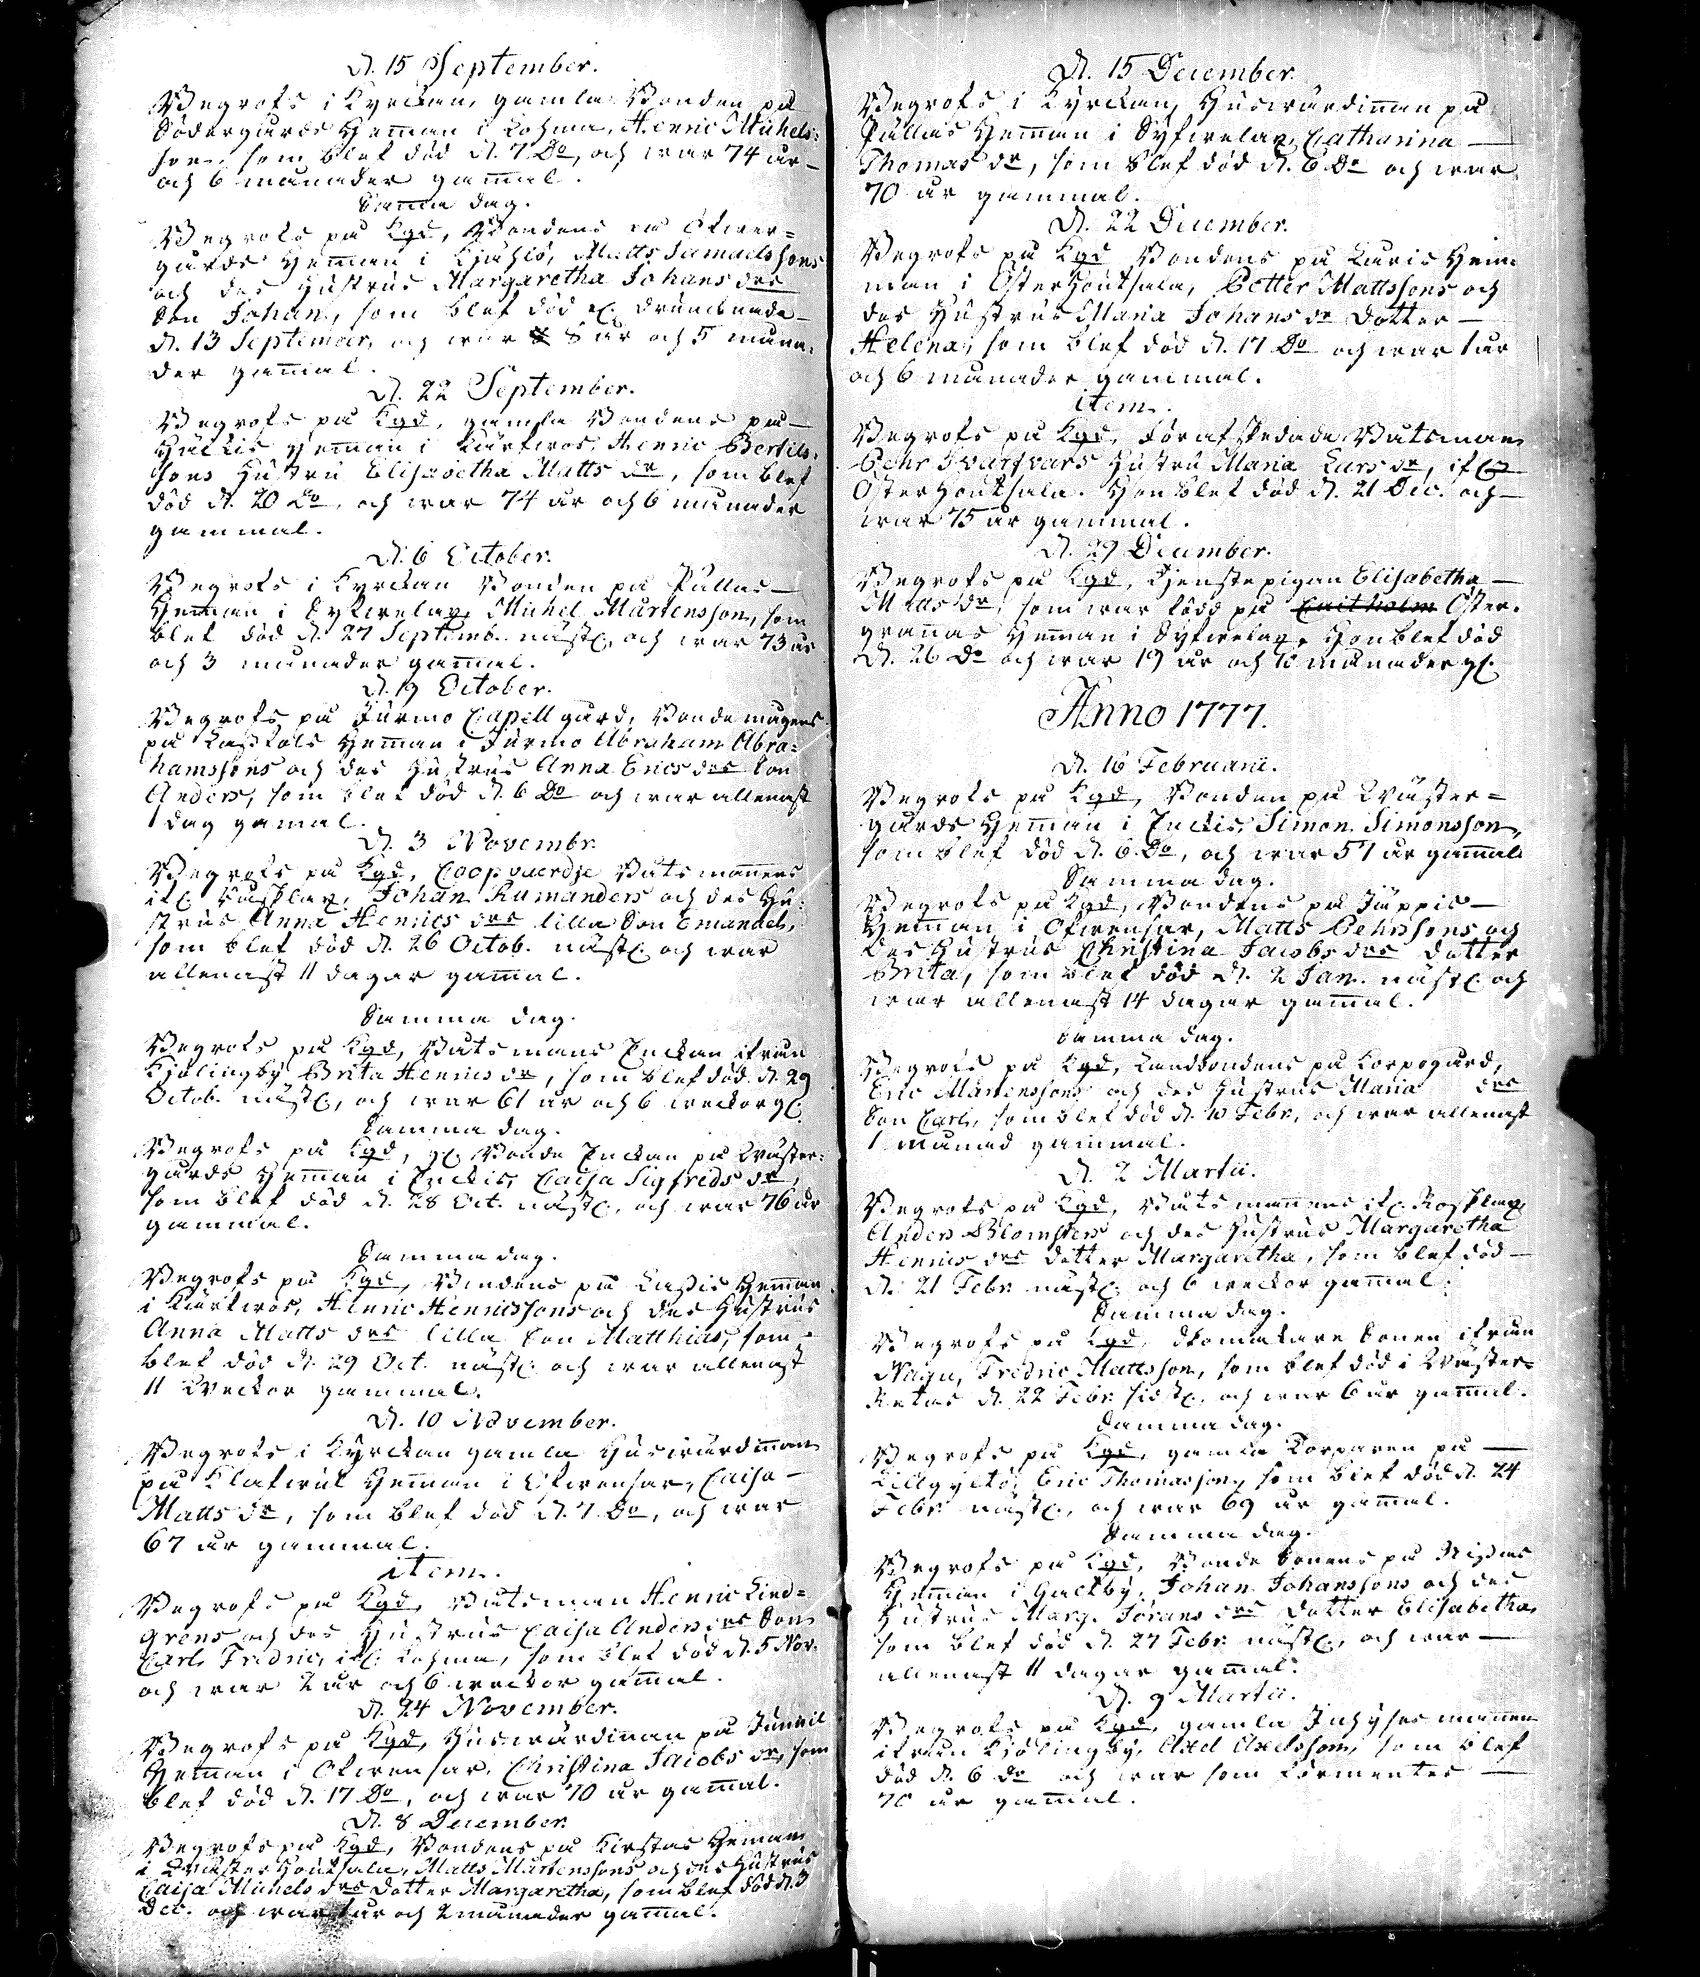 d. 15 September.
Begrofs i Kyrckan, gamla Bonden på
Södergårds Heman i Lohma, Henric Michels-
son, som blef död d. 7 Do, och war 74 år
och 6 månader gammal.
Samma dag.
Begrofs på Kgd, Bondens på Öfwer=
gårds Heman i Kjuhlö, Matts Samuelssons
och des Hustrus Margaretha Johans drs
Son Johan, som blef död
d. 13 September, och war 8 år och 5 måna-
der gamal.
d. 22 September.
Begrofs på Kgd, gamla Bondens på
Heman i Kårkwos, Henric Bertils-
sons Hustru Elisabetha Matts dr, som blef
död d. 20 Do, och war 74 år och 6 månader
gammal.
d. 6 October.
Begrofs i Kyrckan Bonden på Pullas
Heman i Syfwelax, Michel Mårtensson, som
blef död d. 27 Septemb. nästl. och war 73 år
och 3 månader gamal.
d. 19 October.
Begrofs på Jurmo Capell gård, Bonde mågens
på Heman i Jurmo Abraham Abra-
hamssons och des Hustrus Anna Erics drs Son
Anders, som blef död d. 6 Do och war allenast
1 dag gamal.
d. 3 Novembr.
Begrofs på Kgd, Coopvaerdje Båtsmanens
ifl. Rosklax, Johan Rumanders och des Hu-
strus Anna Henrics drs lilla Son Emanuel,
som blef död d. 26 Octob. nästl. och war
allenast 11 dagar gamal.
Samma dag.
Begrofs på Kgd, Båtsmans Enckan ifrån
Kjälingby Brita Henrics dr, som blef död d. 29
Octob. nästl. och war 61 år och 6 weckor gl.
Samma dag.
Begrofs på Kgd, gl. Bonde Enckan på Wäster-
gårds Heman i Enckis, Caisa Sigfreds dr,
som blef död d. 28 Oct. nästl. och war 76 år
gammal.
Samma dag.
Begrofs på Kgd, Bondens på Lassis Heman
i Kårkwos, Henric Henricssons och des Hustrus
Anna Matts drs lilla Son Matthias, som
blef död d. 29 Oct. nästl. och war allenast
11 Weckor gammal.
d. 10 November.
Begrofs i Kyrckan gamla Huswärdinnan
på Klafwul Heman i Öfwensar, Caisa
Matts dr, som blef död d. 7 Do, och war
67 år gammal.
item.
Begrofs på Kgd, Båtsman Henric Lind=
grens och des Hustrus Caisa Anders drs Son
Carl Fredric, ifl. Lohma, som blef död d. 5 Nov.
och war 2 år och 6 weckor gamal.
d. 24 November.
Begrofs på Kgd, Huswärdinan på Junnil
Heman i Öfwensar, Christina Jacobs dr, som
blef död d. 17 Do, och war 70 år gamal.
d. 8 December.
Begrofs på Kgd, Bondens på Kirstas Heman
i Wäster Houtsala, Matts Mårtenssons och des Hustrus
Caisa Michels drs Dotter Margaretha, som blef död d. 3
Dec. och war 1 år och 2 månader gamal.
d. 15 December.
Begrofs i Kyrckan, Huswärdinnan på
Pullas Heman i Syfwelax, Catharina
Thomas dr, som blef död d. 6 Do och war
70 år gammal.
d. 22 December.
Begrofs på Kgd Bondens på Laris Hem-
man i Öster Houtsala, Petter Mattssons och
des Hustrus Maria Johans dr Dotter
Helena, som blef död d. 17 Do och war 1 år
och 6 månader gammal.
item.
Begrofs på Kgd, förafskedade Båtsman
Pehr Svartvars Hustru Maria Lars dr, ifl.
Öster Houtsala. Hon blef död d. 21 Dec. och
war 75 år gammal.
d. 29 December.
Begrofs på Kgd, Tjenstepigan Elisabetha
Matts dr, som war född på Öster-
granas Heman i Syfwelax. Hon blef död
d. 26 Do och war 19 år och 10 månader gl.
Anno 1777.
d. 16 Februarii.
Begrofs på Kgd, Bonden på Wäster=
gårds Heman i Enckis, Simon Simonsson,
som blef död d. 6 Do, och war 57 år gamal
Samma dag.
Begrofs på Kgd, Bondens på Jäppis
Heman i Öfwensar, Matts Pehrssons och
des Hustrus Christina Jacobs drs dotter
Brita, som blef död d. 2 Jan. nästl. och
war allenast 14 dagar gamal.
Samma dag.
Begrofs på Kgd, Landbondens på Korpogård,
Eric Mårtenssons och des Hustrus Maria drs
Son Carl, som blef död d. 10 Febr. och war allenast
1 månad gammal.
d. 2 Martii.
Begrofs på Kgd, Båtsmanens ifl. Rosklax
Anders Blomsters och des Hustrus Margaretha
Henrics drs dotter Margaretha, som blef död
d. 21 Febr. nästl. och 6 weckor gamal.
Samma dag.
Begrofs på Kgd, Skomakare Sonen ifrån
Nagu, Fredric Mattsson, som blef död i Wäster-
Retais d. 22 Febr. sidstl. och war 6 år gamal.
Samma dag.
Begrofs på Kgd, gamla Torparen på
Lillgyltö, Eric Thomasson, som blef död d. 24
Febr. nästl., och war 69 år gamal.
Samma dag.
Begrofs på Kgd, Bonde Sonens på Nissas
Heman i Galtby, Johan Johanssons och des
Hustrus Marg. Jörans drs Dotter Elisabetha,
som blef död d. 27 Febr. nästl., och war
allenast 11 dagar gamal.
d. 9 Martii.
Begrofs på Kgd, gamla Inhyses mannen
ifrån Kjälingby, Axel Axelsson, som blef
död d. 6 do och war som förmentes
70 år gamal.